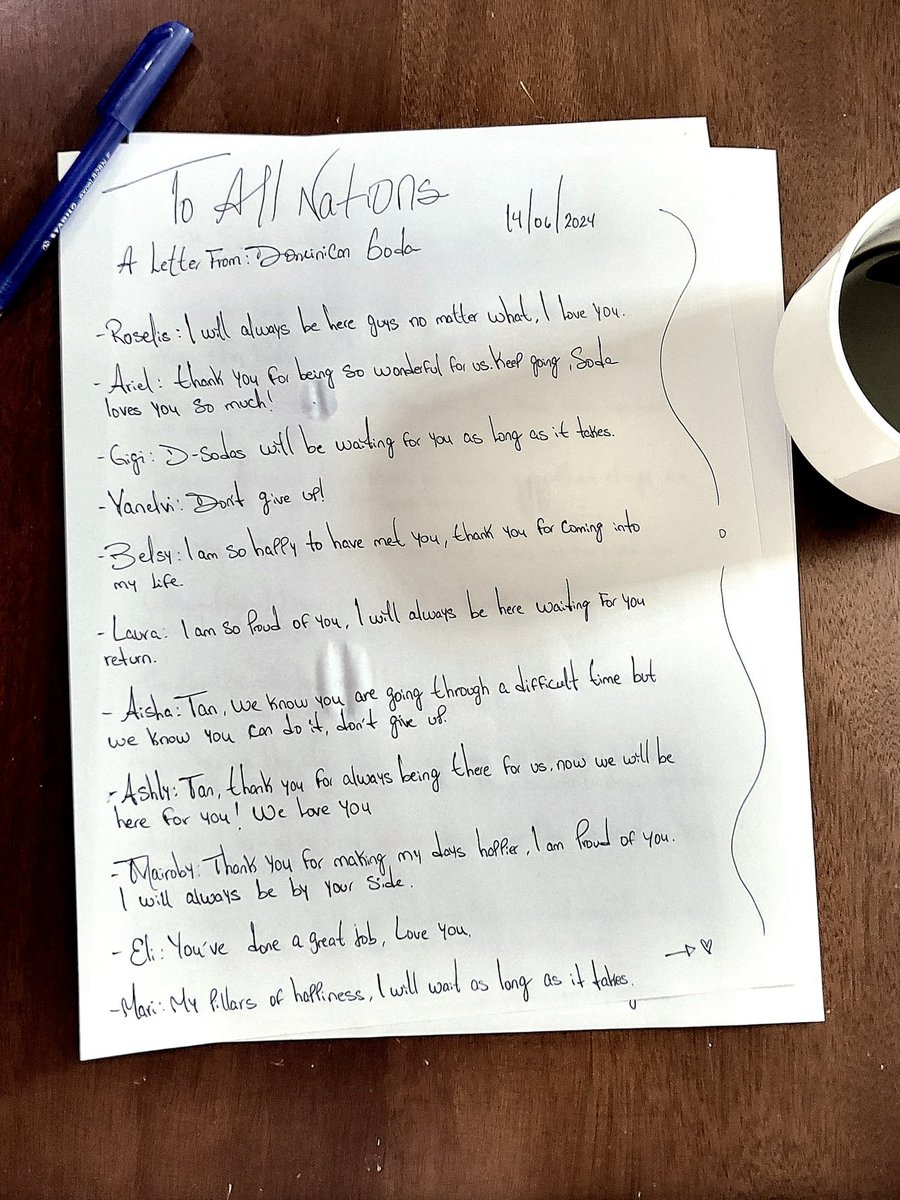 To All Nations
14/06/2024
A Letter From: Dominican Soda
- Roselis: I will always be here guys no matter what, I love you.
- Ariel: thank you for being so wonderful for us. Keep going, Soda
loves you so much!
- Gigi: D-Sodas will be waiting for you as long as it takes.
- Yanelvi: Don't give up!
- Belsy: I am so happy to have met you, thank you for coming into
my life.
- Laura: I am so proud of you, I will always be here waiting for you
return.
- Aisha: Tan, we know you are going through a difficult time but
we know you can do it, don't give up.
- Ashly: Tan, thank you for always being there for us, now we will be
here for you! We love you
- Mairoby: Thank you for making my days happier, I am proud of you.
I will always be by your side.
- Eli: You've done a great job, Love you.
- Mari: My pillars of happiness, I will wait as long as it takes.
→ ♡
STABILO